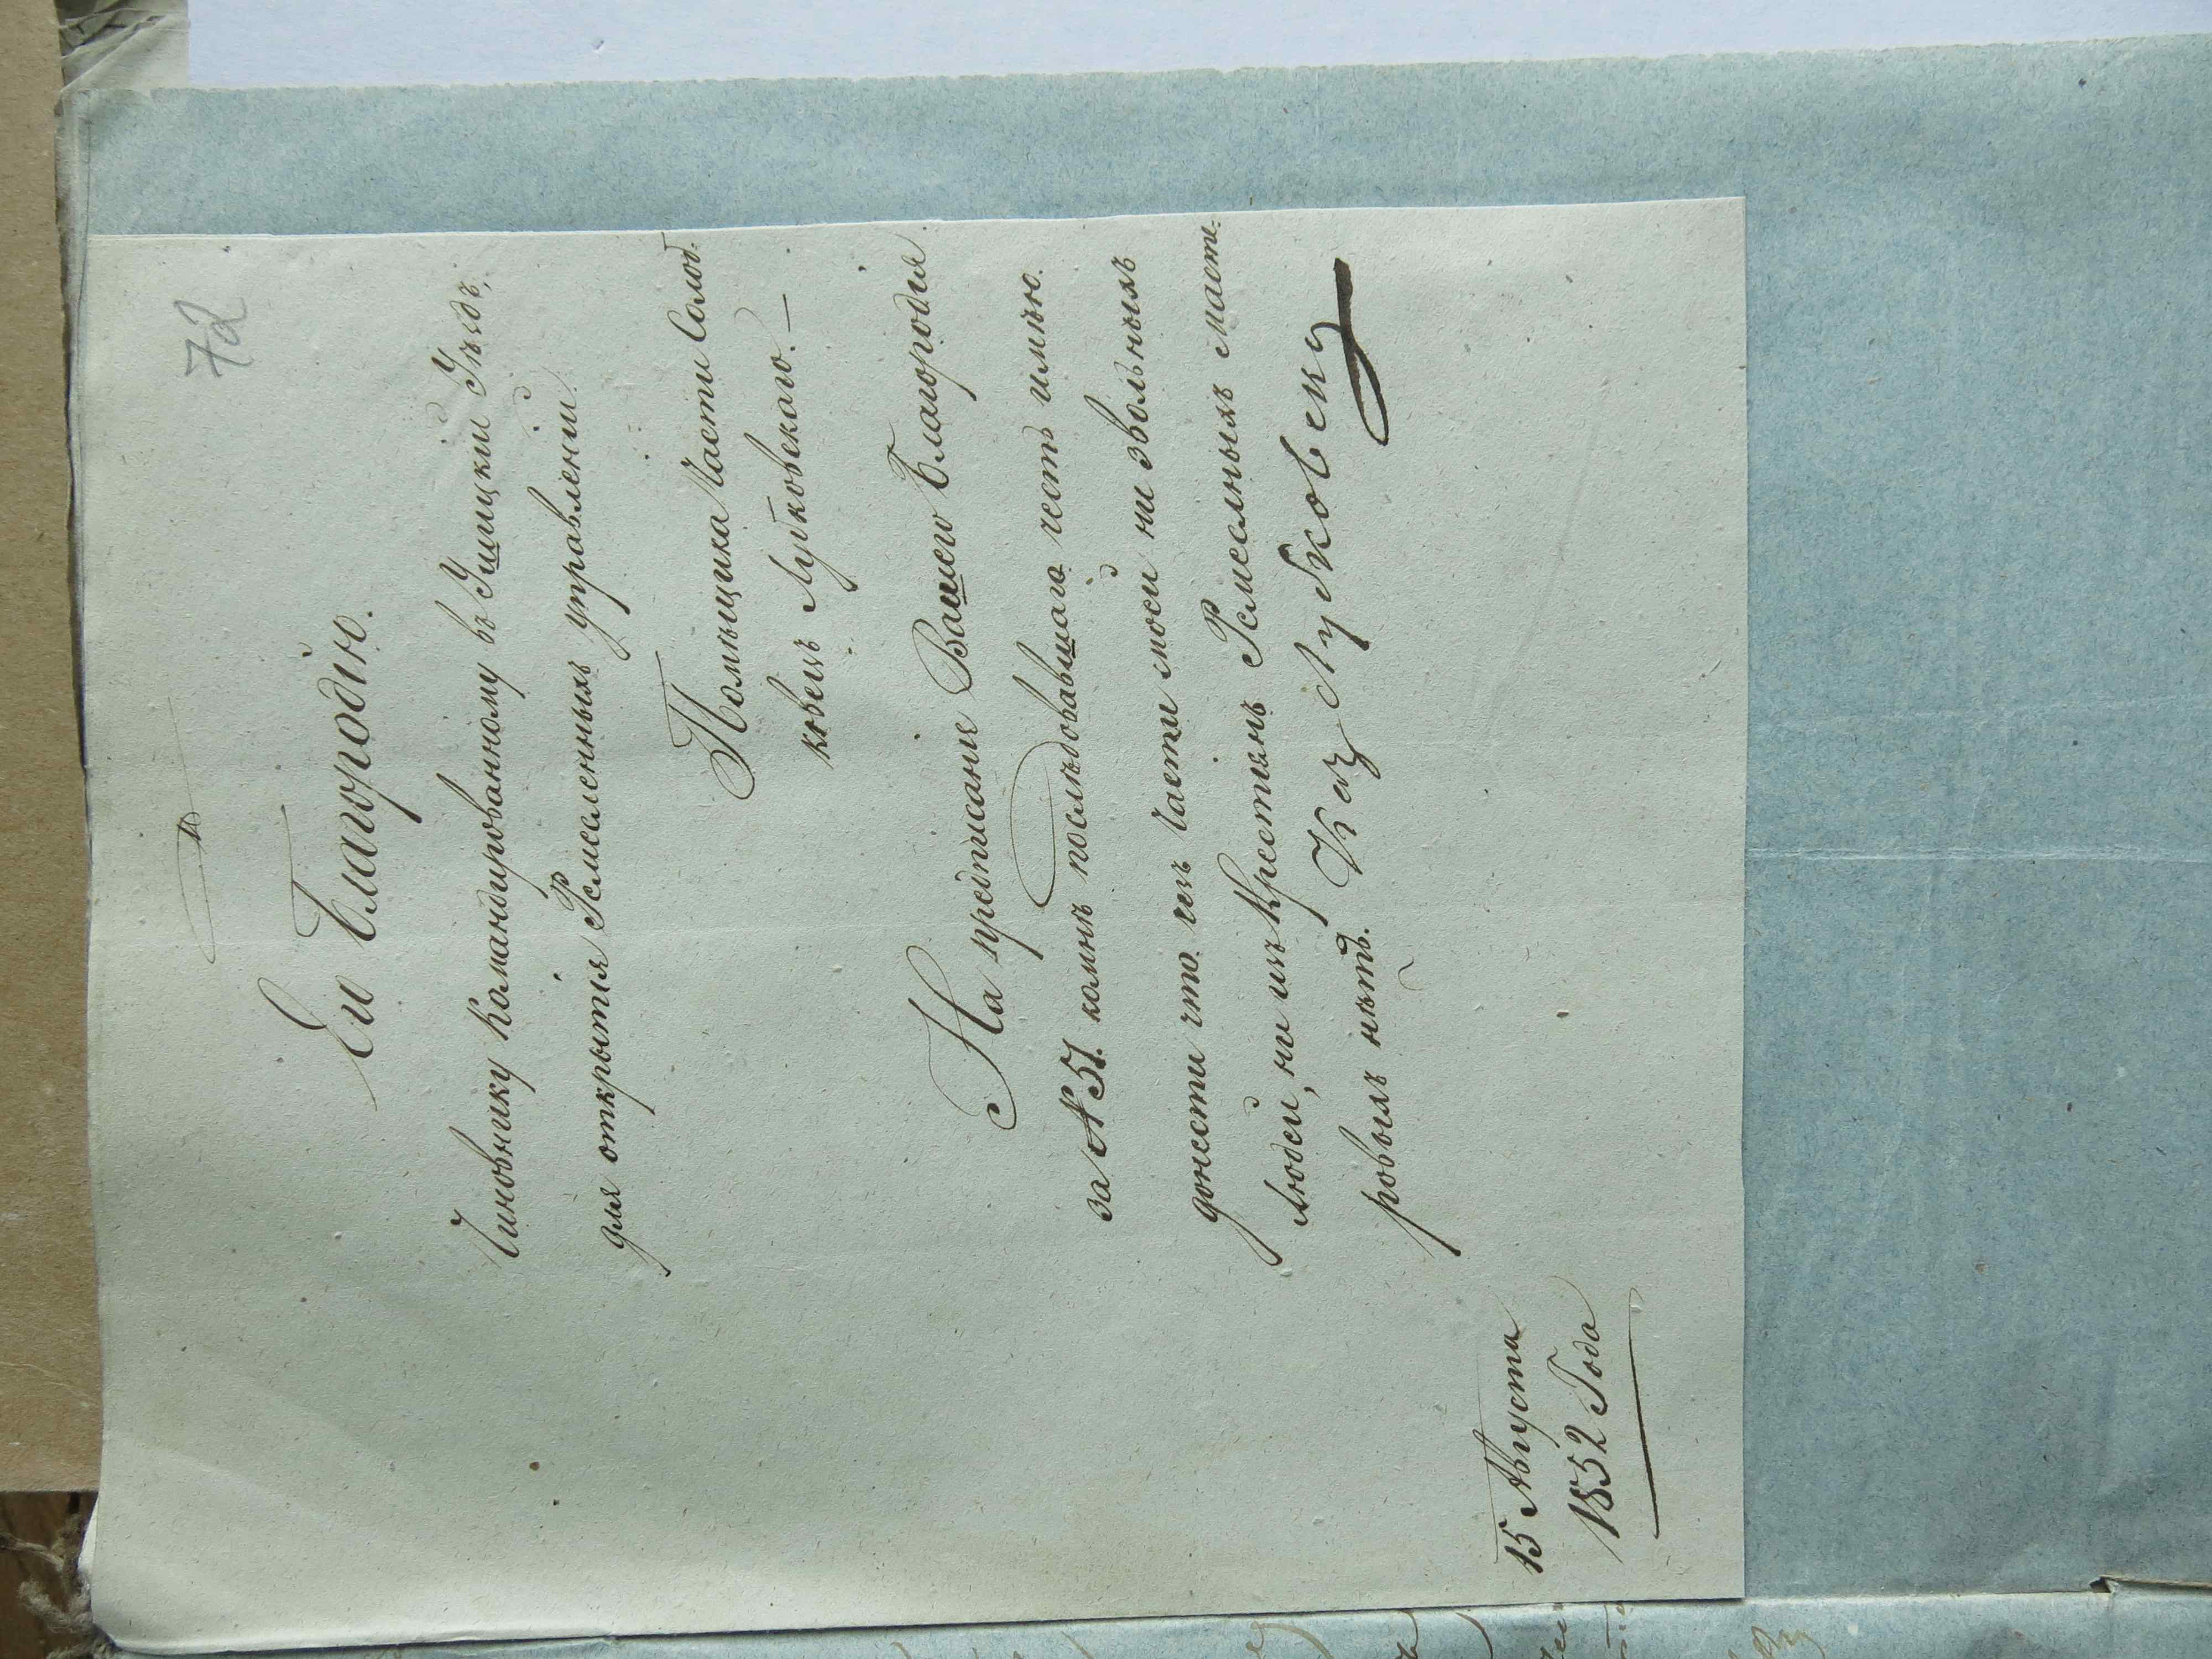 72
Его Благородію.
Чиновнику Командированному въ Ушицкій Уѣздъ,
для открытія Ремесленныхъ управленій
Помѣщика Части Солод:
ковецъ Лубковскаго. —
На предписаніе Вашего Благородія
за № 51. комнѣ послѣдовавшаго честь имѣю.
донести что. изъ Части моей ни зволныхъ
Людей, ни изъ Крестіянъ Ремеслныхъ масте:
ровыхъ нѣтъ. Каз Лубковски
15 Августа
1852 Года